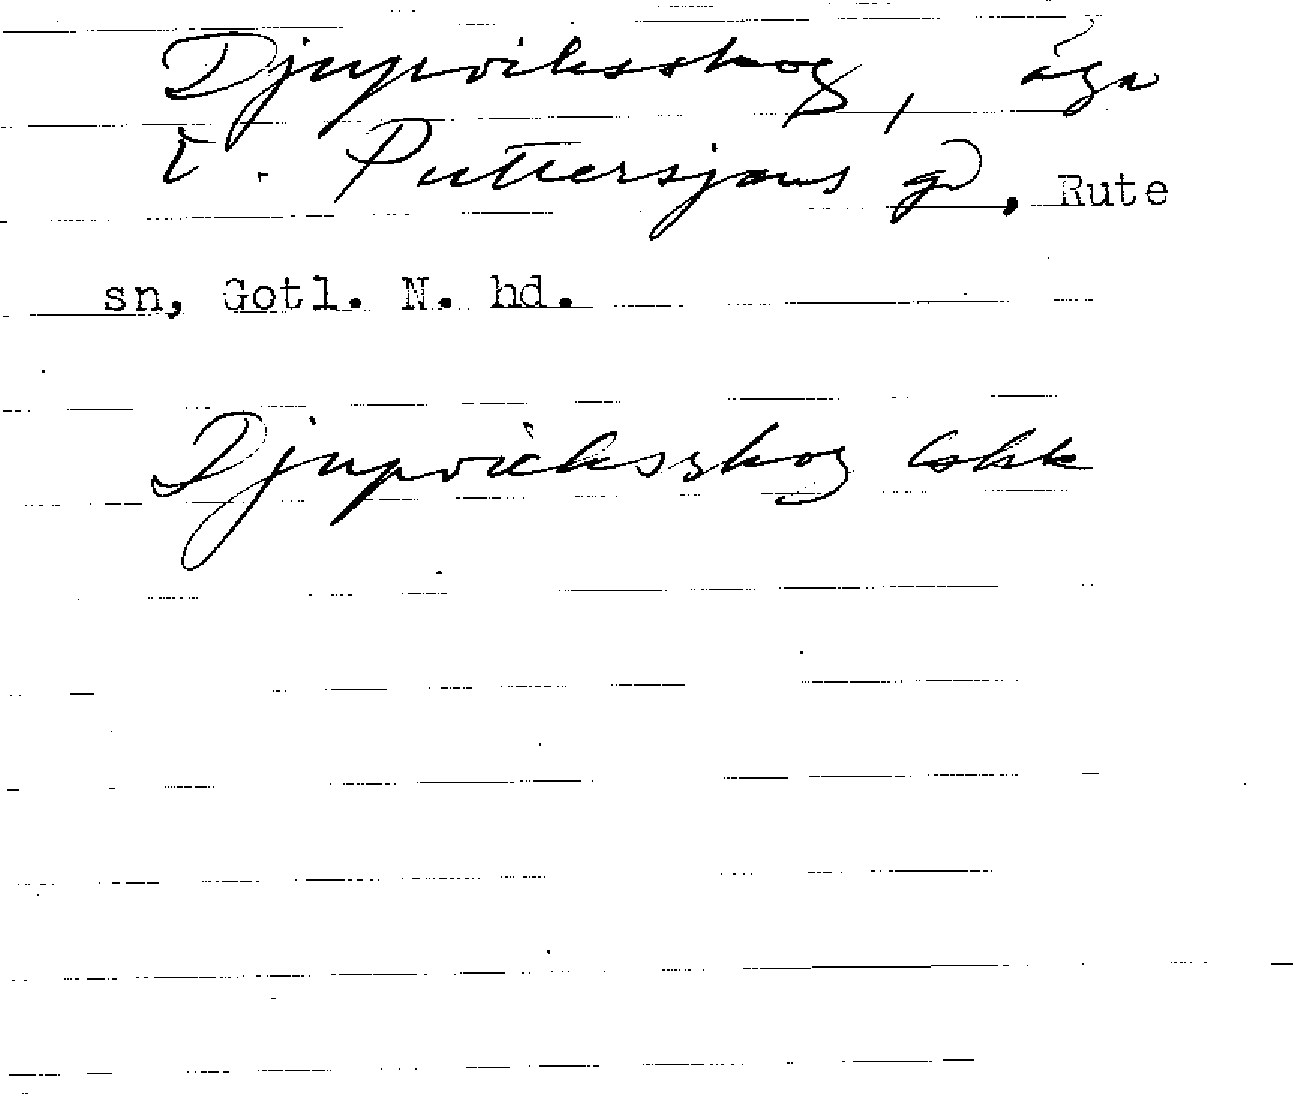 Djupviksskog, äga
t. Puttersjaus gd, Rute
sn, Gotl. N. hd.
Djupviksskog lskk